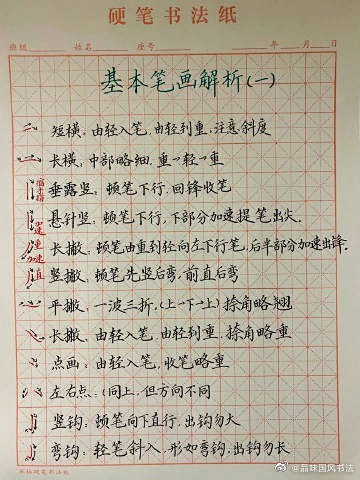 硬笔书法纸
班级 姓名 座号 年 月 日
基本笔画解析(一)
短横：由轻入笔，由轻到重，注意斜度
长横，中部略细，重→轻→重
垂露竖：顿笔下行，回锋收笔
悬针竖，顿笔下行，下部分加速提笔出尖。
长撇：顿笔由重到轻向左下行笔，后半部分加速出锋.
竖撇，顿笔先竖后弯，前直后弯
平捺，一波三折，(上→下→上)捺角略翘
长捺：由轻入笔，由轻到重，捺角略重
点画：由轻入笔，收笔略重
左右点：(同上，但方向不同
竖钩：顿笔向下直行，出钩勿大
弯钩：轻笔斜入，形如弯钩，出钩勿长
@品味国风书法